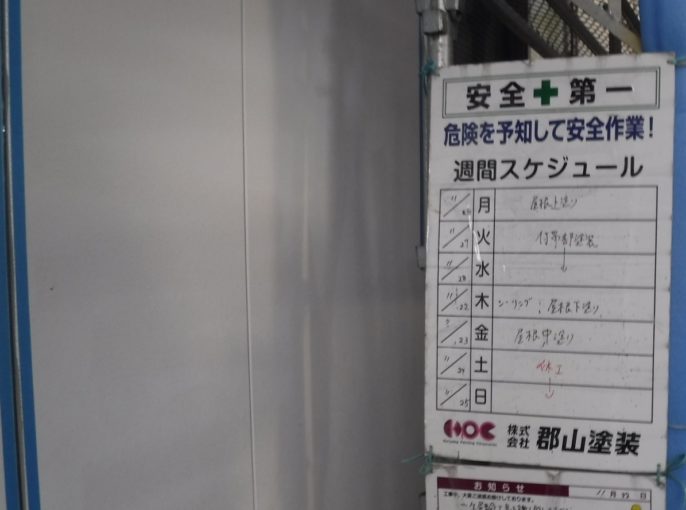 安全✚第一
危険を予知して安全作業！
週間スケジュール
11/26 月 屋根上塗り
11/27 火 付帯部塗装
11/28 水 ↓
11/22 木 シーリング；屋根下塗り
23 金 屋根中塗り
11/24 土 休工
25 日 ↓
HOC 株式会社 郡山塗装
お知らせ
11月22日